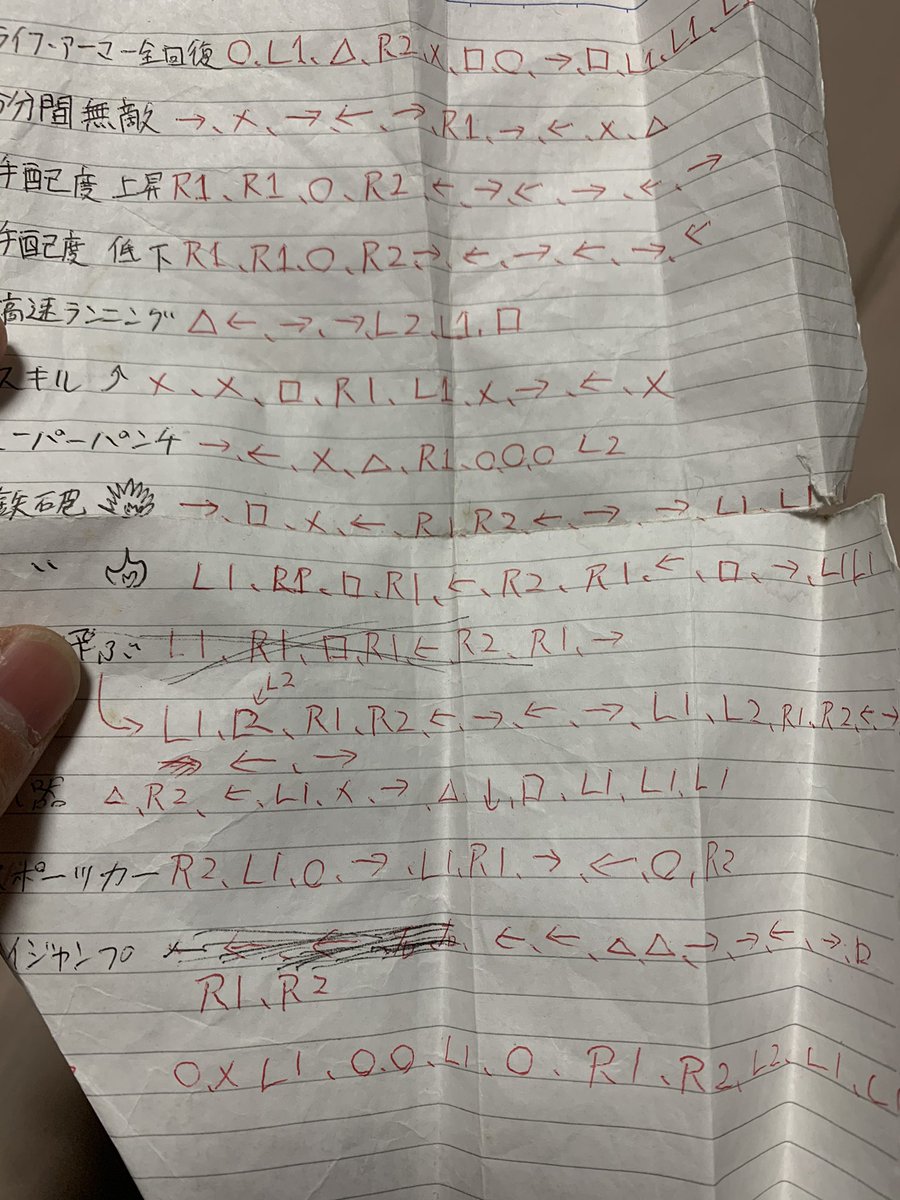 ライフ・アーマー全回復 ○、L1、△、R2、×、□、○、→、□、L1、L1、L1
分間無敵 →、×、→、←、→、R1、→、←、×、△
手配度 上昇 R1、R1、○、R2、←、→、←、→、←、→
手配度 低下 R1、R1、○、R2、→、←、→、←、→、←
高速ランニング △←、→、→、L2、L1、□
スキル↑ ×、×、□、R1、L1、×、→、←、×
ーパーパンチ →、←、×、△、R1、○、○、○ L2
鉄砲 →、□、×、←、R1、R2、←、→、→、L1、L1
〃 L1、R1、□、R1、←、R2、R1、←、□、→、L1L1
飛ぶ L1、R1、□、R1、←、R2、R1、→
L2
L1、R1、R2、←、→、←、→、L1、L2、R1、R2、←→
←、→
器 △、R2、←、L1、×、→、△、↓、□、L1、L1、L1
スポーツカー R2、L1、○、→、L1、R1、→、←、○、R2
イジャンプ ←、←、△△、→、→、←、→、□
R1、R2
○、×L1、○、○、L1、○、R1、R2、L2、L1、L1